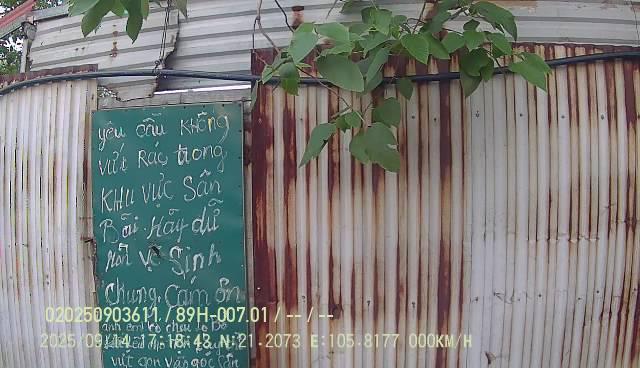 yêu cầu không
vứt Rác trong
KHU VỰC Sân
Bãi. Hãy dữ
vệ Sinh
Chung. Cám ơn
020250903611 / 89H-007.01 / -- / --
anh em
2025/09/14 17:18:43 N:21.2073 E:105.8177 000KM/H
vứt gọn vào góc